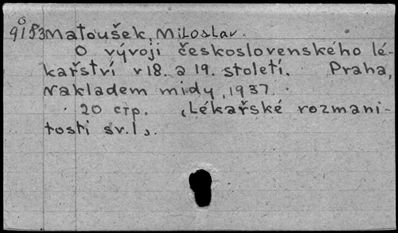 9153 Matoušek, Miloslav.
O vývoji československého lé-
kařství v 18. a 19. století. Praha,
Nakladem midy, 1937.
20 стр. (Lékařské rozmani-
tosti sv.1).